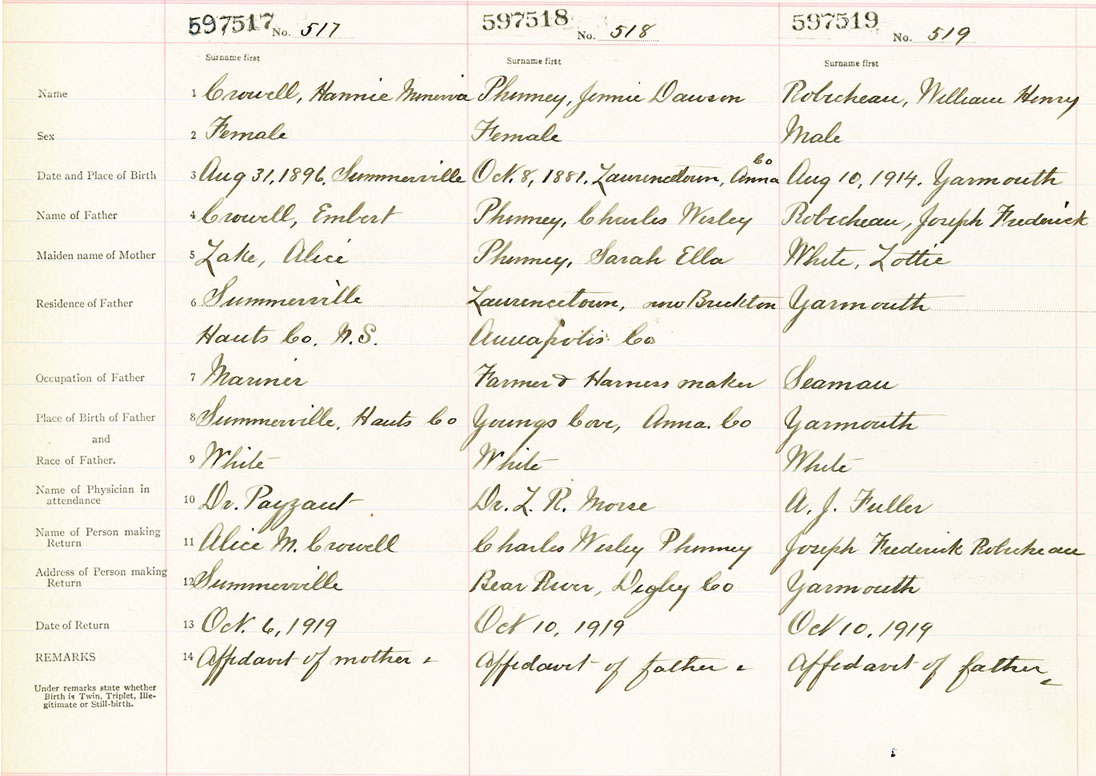 597517 No. 517 597518 No. 518 597519 No. 519
Surname first Surname first Surname first
Name 1 Crowell, Hannie Minerva Phinney, Jennie Dawson Robicheau, William Henry
Sex 2 Female Female Male
Date and Place of Birth 3 Aug 31, 1896, Summerville Oct. 8, 1881. Laurencetown, Anna Co Aug 10, 1914. Yarmouth
Name of Father 4 Crowell, Embert Phinney, Charles Wesley Robicheau, Joseph Frederick
Maiden name of Mother 5 Lake, Alice Phinney, Sarah Ella White, Lottie
Residence of Father 6 Summerville Laurencetown, now Bruckton Yarmouth
Hants Co. N.S. Annapolis Co
Occupation of Father 7 Mariner Farmer & Harness maker Seaman
Place of Birth of Father 8 Summerville, Hants Co Youngs Cove, Anna. Co Yarmouth
and
Race of Father. 9 White White White
Name of Physician in attendance 10 Dr. Payzant Dr. L. R. Morse A. J. Fuller
Name of Person making Return 11 Alice M. Crowell Charles Wesley Phinney Joseph Frederick Robicheau
Address of Person making Return 12 Summerville Bear River, Digby Co Yarmouth
Date of Return 13 Oct. 6, 1919 Oct 10, 1919 Oct 10, 1919
REMARKS 14 Affidavit of mother Affidavit of father Affidavit of father
Under remarks state whether
Birth is Twin, Triplet, Ille-
gitimate or Still-birth.